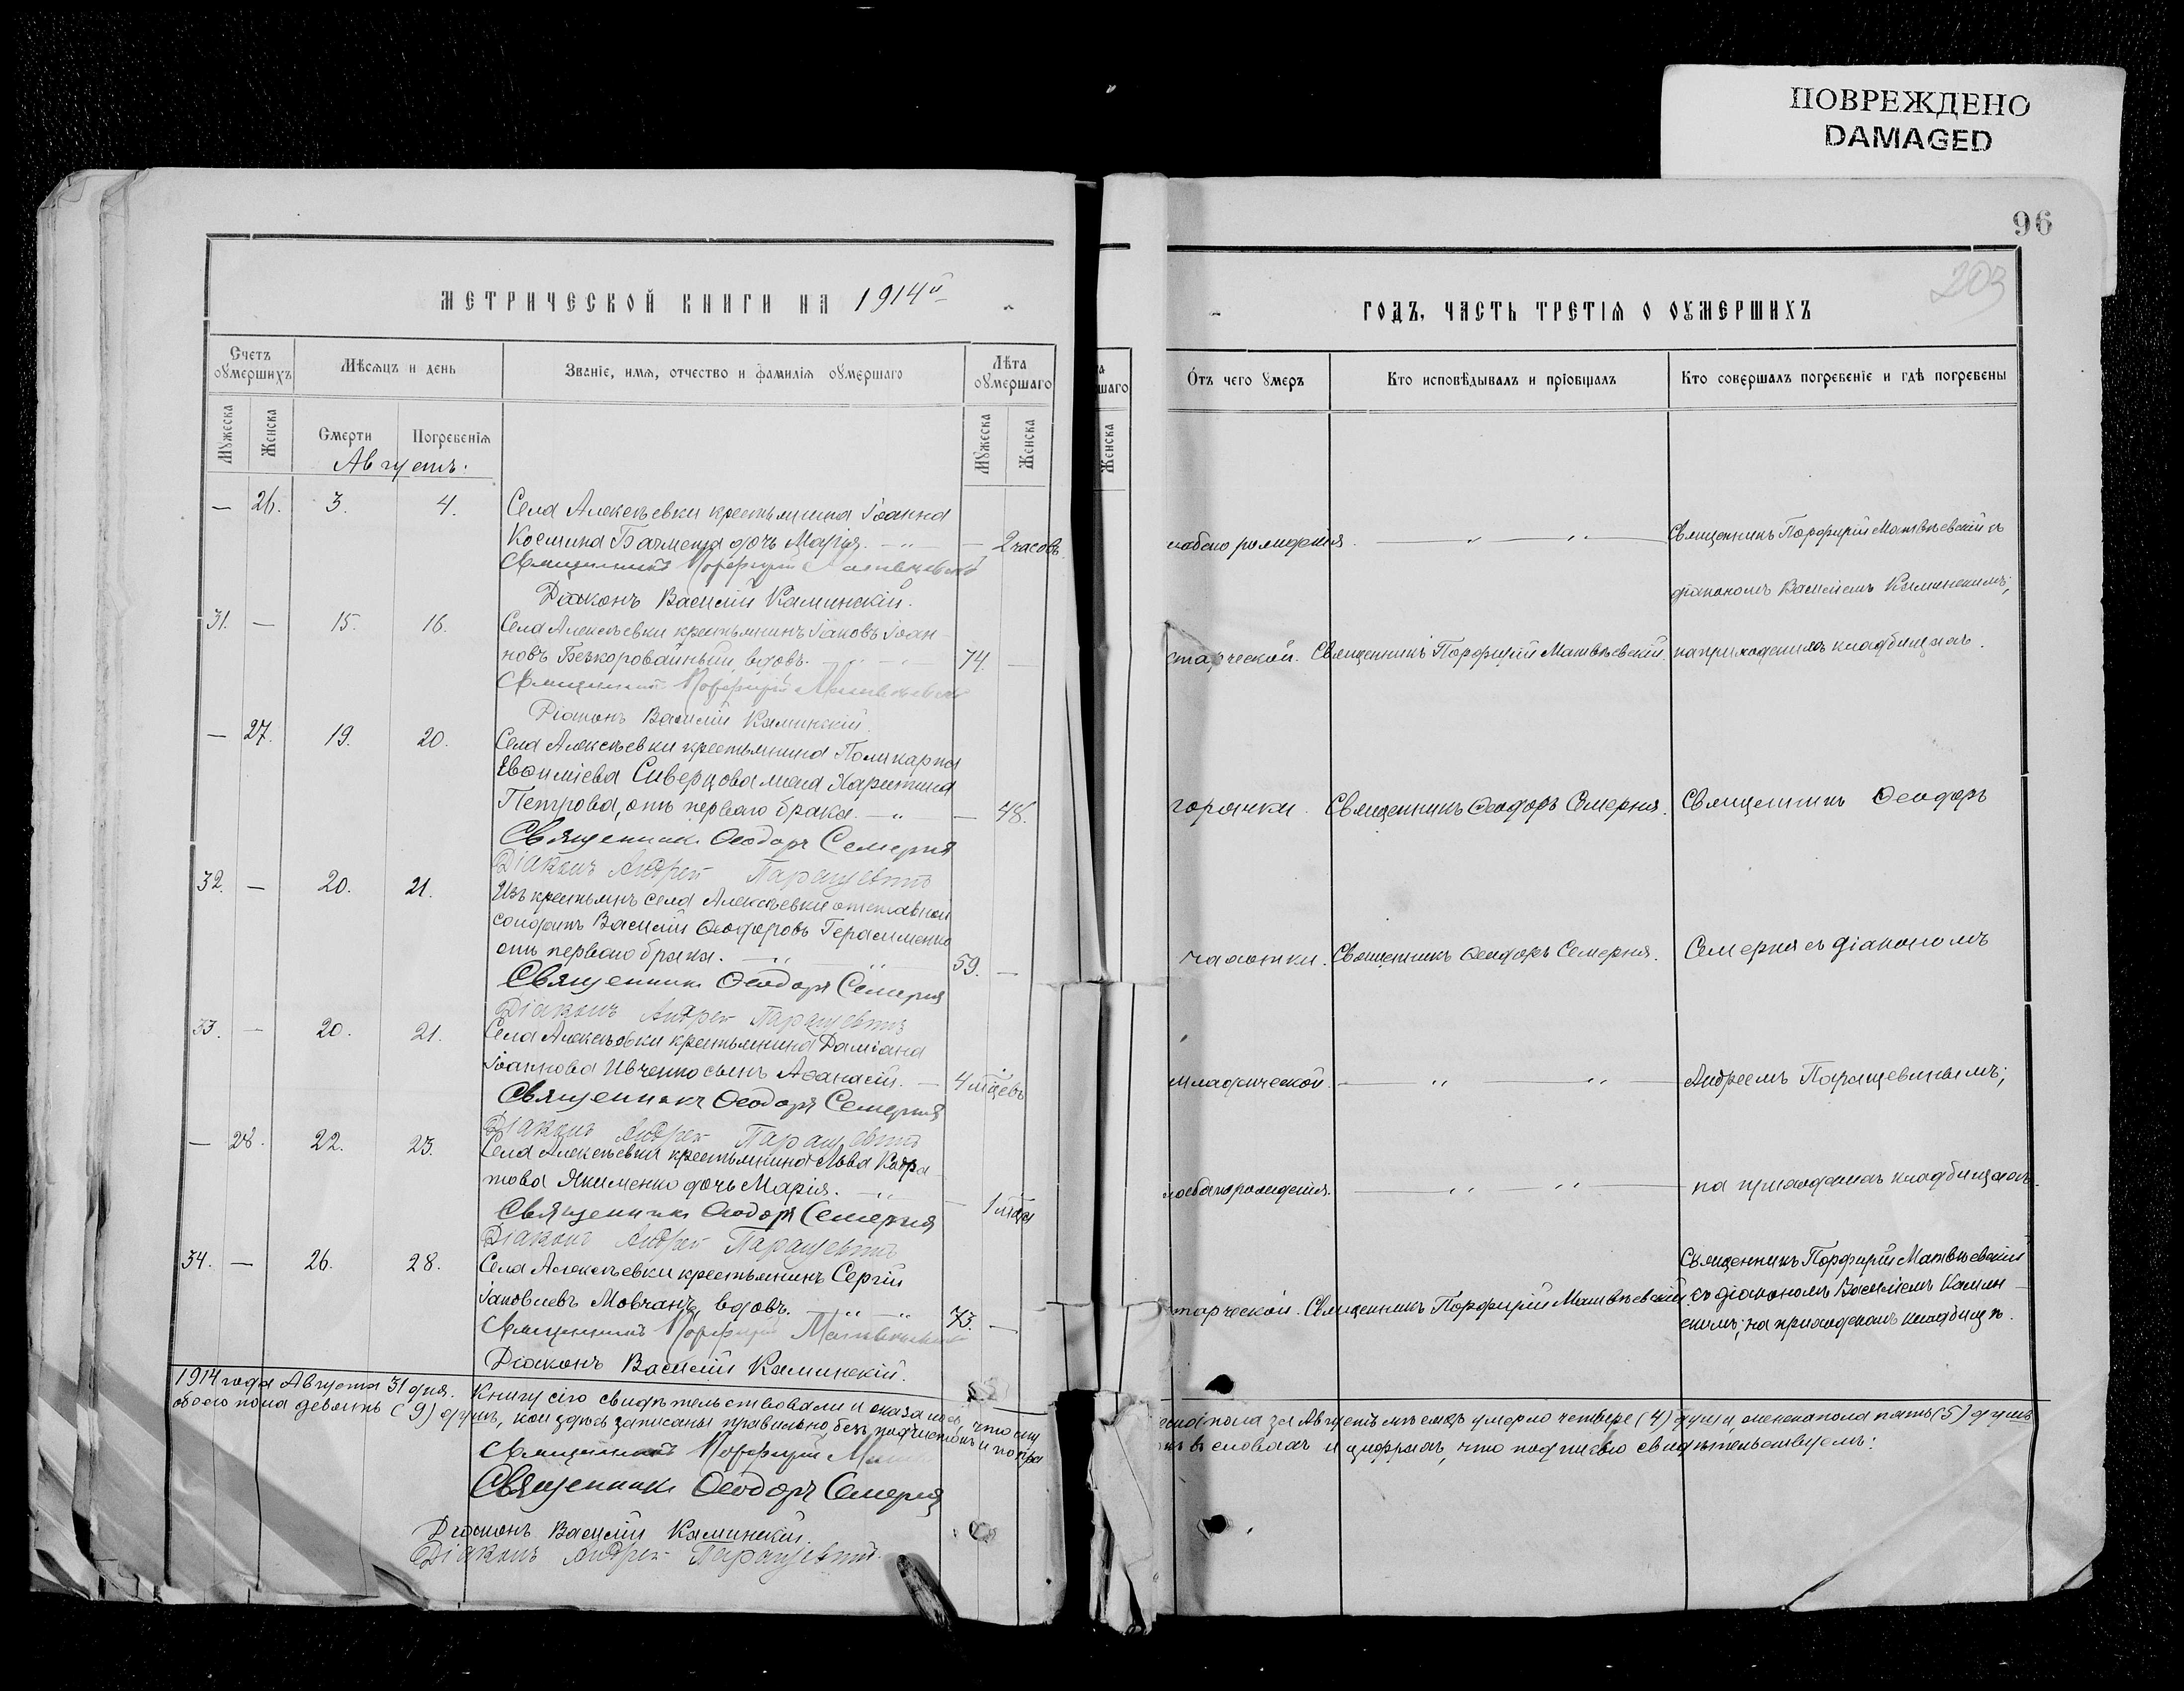 ПОВРЕЖДЕНО
DAMAGED
96
203
МЕТРИЧЕСКОЙ КНИГИ НА 1914й
Счетъ оумершихъ
Мѣсяцъ и день
Званіе, имя, отчество и фамилія оумершаго
Лѣта оумершаго
Мужеска
Женска
Смерти
Погребенія
Мужеска
Женска
Августъ.
— 26. 3. 4. Села Алексѣевки крестьянина Іоанна
Косьмина дочь Марія. — 2 часовъ
Священникъ Порфирій Матвѣевскій
Діаконъ Василій Каминскій.
31. — 15. 16. Села Алексѣевки крестьянинъ Іаковъ Іоан-
новъ Безкоровайный, вдовъ. 74. —
Священникъ Порфирій Матвѣевскій
Діаконъ Василій Каминскій.
— 27. 19. 20. Села Алексѣевки крестьянина Поликарпа
Евѳиміева Сиверцова жена Харитина
Петрова, отъ перваго брака. — 48.
Священникъ Ѳеодоръ Семерня
Діаконъ Андрей
32. — 20. 21. Изъ крестьянъ села Алексѣевки отставной
солдатъ Василій Ѳеодоровъ Герасименко
отъ перваго брака. 59. —
Священникъ Ѳеодоръ Семерня
Діаконъ Андрей
33. — 20. 21. Села Алексѣевки крестьянина Даміана
Іоаннова Ивченко сынъ Аѳанасій. — 4 мѣсцевъ
Священникъ Ѳеодоръ Семерня
Діаконъ Андрей
— 28. 22. 23. Села Алексѣевки крестьянина Льва Кодра-
това Якименко дочь Марія. — 1
Священникъ Ѳеодоръ Семерня
Діаконъ Андрей
34. — 26. 28. Села Алексѣевки крестьянинъ Сергій
Іаковлевъ Мовчанъ, вдовъ. 73. —
Священникъ Порфирій Матвѣевскій
Діаконъ Василій Каминскій.
1914 года Августа 31 дня. Книгу сію свидѣтельствовали и оказалось, что
обоего пола девять (9) душъ, кои здѣсь записаны правильно, безъ подчистокъ и попра
Священникъ Порфирій
Священникъ Ѳеодоръ Семерня
Діаконъ Василій Каминскій.
Діаконъ Андрей
ГОДЪ, ЧАСТЬ ТРЕТІЯ О ОУМЕРШИХЪ
а
шаго
Женска
Отъ чего умеръ
Кто исповѣдывалъ и пріобщалъ
Кто совершалъ погребеніе и гдѣ погребены
рожденія. — Священникъ Порфирій Матвѣевскій съ
діакономъ Василіемъ Каминскимъ;
старческой. Священникъ Порфирій Матвѣевскій. на приходскихъ кладбищахъ.
горячки. Священникъ Ѳеодоръ Семерня. Священникъ Ѳеодоръ
чахотки. Священникъ Ѳеодоръ Семерня. Семерня съ діакономъ
младенческой. — Андреемъ
— на приходскихъ кладбищахъ.
Священникъ Порфирій Матвѣевскій
тарческой. Священникъ Порфирій Матвѣевскій съ діакономъ Василіемъ Камин-
скимъ; на приходскомъ кладбищѣ.
пола за Августъ мѣсяцъ умерло четверо (4) души, женска пола пять (5) душъ
въ словахъ и цифрахъ, что подписью свидѣтельствуемъ: